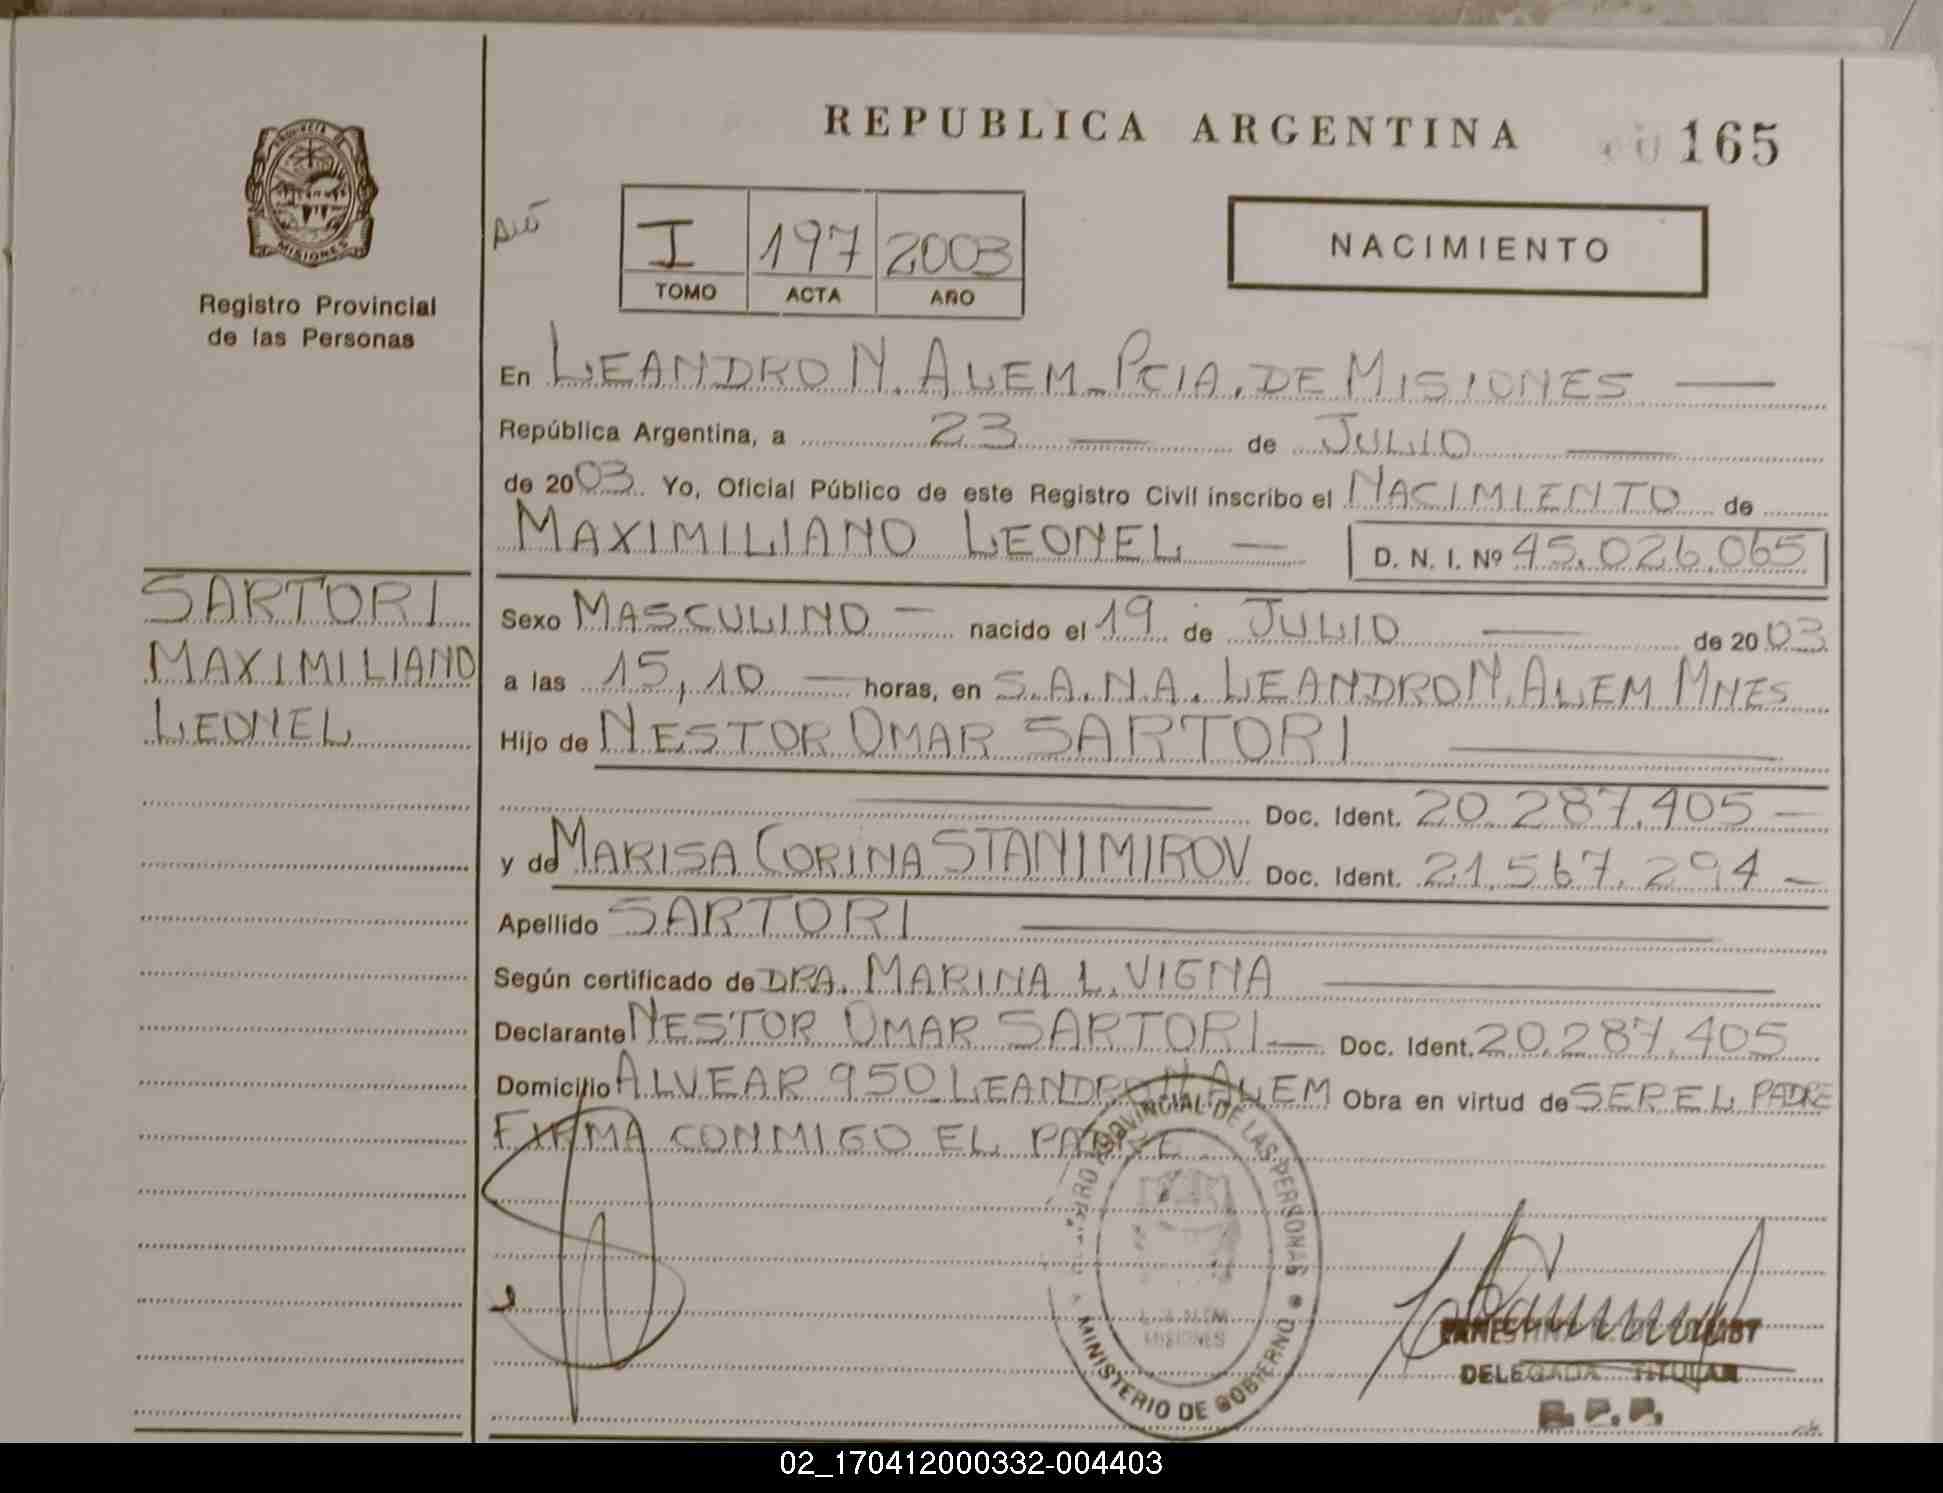 REPUBLICA ARGENTINA
165
PROVINCIA DE
MISIONES
Registro Provincial
de las Personas
I 197 2003
TOMO ACTA AÑO
NACIMIENTO
En LEANDRO N. ALEM_PCIA. DE MISIONES
República Argentina, a 23 de JULIO
de 2003. Yo, Oficial Público de este Registro Civil inscribo el NACIMIENTO de
MAXIMILIANO LEONEL D. N. I. Nº 45.026.065
SARTORI
MAXIMILIANO
LEONEL
Sexo MASCULINO nacido el 19 de JULIO de 2003
a las 15,10 horas, en S.A.N.A. LEANDRO N. ALEM MNES
Hijo de NESTOR OMAR SARTORI
Doc. Ident. 20.287.405
y de MARISA CORINA STANIMIROV Doc. Ident. 21.567.294
Apellido SARTORI
Según certificado de DRA. MARINA L. VIGNA
Declarante NESTOR OMAR SARTORI Doc. Ident. 20.287.405
Domicilio ALVEAR 950 LEANDRO N. ALEM Obra en virtud de SER EL PADRE
FIRMA CONMIGO EL PADRE
PROVINCIAL DE LAS PERSONAS
MINISTERIO DE GOBIERNO
MISIONES
DELEGADA TITULAR
R.P.P.
02_170412000332-004403